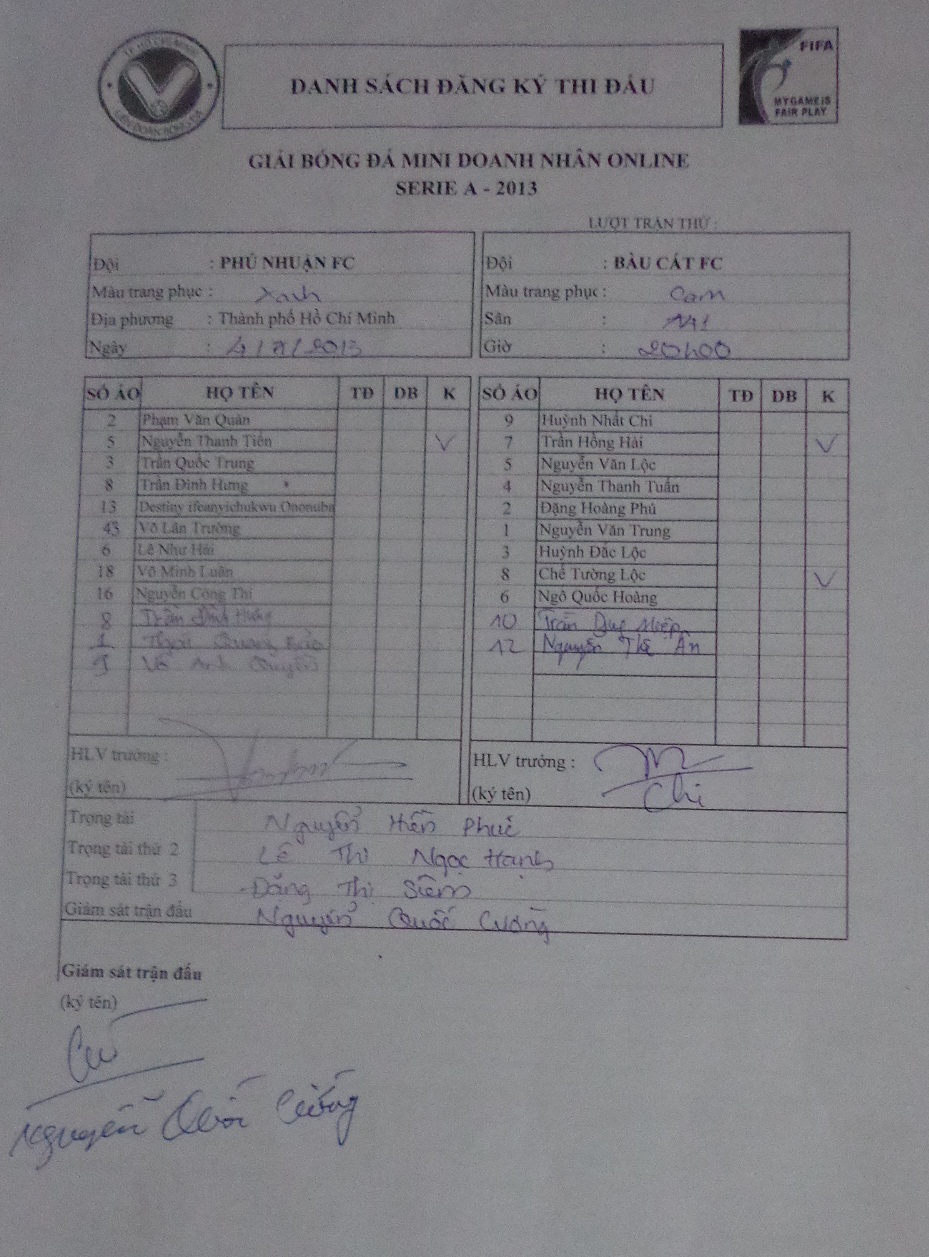 TP. HỒ CHÍ MINH
LIÊN ĐOÀN BÓNG ĐÁ
DANH SÁCH ĐĂNG KÝ THI ĐẤU
FIFA
MY GAME IS
FAIR PLAY
GIẢI BÓNG ĐÁ MINI DOANH NHÂN ONLINE
SERIE A - 2013
LƯỢT TRẬN THỨ :
Đội : PHÚ NHUẬN FC
Màu trang phục : Xanh
Địa phương : Thành phố Hồ Chí Minh
Ngày : 4/8/2013
Đội : BÀU CÁT FC
Màu trang phục : Cam
Sân :
Giờ : 20h00
SỐ ÁO HỌ TÊN TĐ DB K
2 Phạm Văn Quân
5 Nguyễn Thanh Tiên V
3 Trần Quốc Trung
8 Trần Đình Hưng
13 Destiny ifeanyichukwu Ononuba
43 Võ Lân Trường
6 Lê Như Hải
18 Võ Minh Luân
16 Nguyễn Công Thi
8 Trần Đình Hưng
1 Quang
9 Võ Anh
HLV trưởng :
(ký tên)
SỐ ÁO HỌ TÊN TĐ DB K
9 Huỳnh Nhất Chi
7 Trần Hồng Hải V
5 Nguyễn Văn Lộc
4 Nguyễn Thanh Tuấn
2 Đặng Hoàng Phú
1 Nguyễn Văn Trung
3 Huỳnh Đắc Lộc
8 Chế Tường Lộc V
6 Ngô Quốc Hoàng
10 Trần Duy Hiệp
12 Nguyễn Thế Ân
HLV trưởng :
(ký tên) Chi
Trọng tài Nguyễn Hiền Phúc
Trọng tài thứ 2 Lê Thị Ngọc Hạnh
Trọng tài thứ 3 Đặng Thị Siêm
Giám sát trận đấu Nguyễn Quốc Cường
Giám sát trận đấu
(ký tên)
Nguyễn Quốc Cường